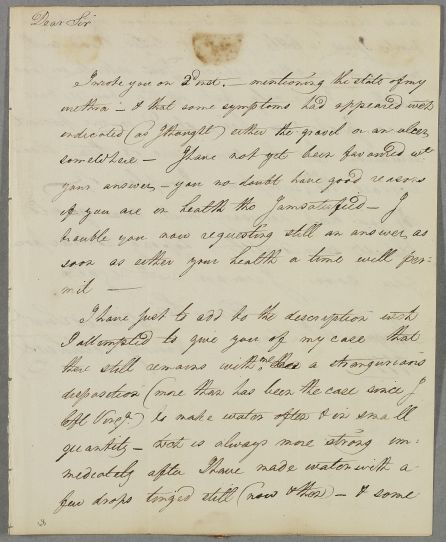 Dear Sir
I wrote you on 2d inst. — mentioning the state of my
urethra — & that some symptoms had appeared wch
indicated (as I thought) either the gravel or an ulcer
somewhere — I have not yet been favoured wt
your answer — you no doubt have good reasons
if you are in health tho I am satisfied — I
trouble you now requesting still an answer as
soon as either your health or time will per=
mit —
I have just to add to the description wch
I attempted to give you of my case that
there still remains with me a strangurious
disposition (more than has been the case since I
left Virga) to make water often & in small
quantity — wch is always more strong im=
mediately after I have made water with a
few drops tinged still (now & then) — & some